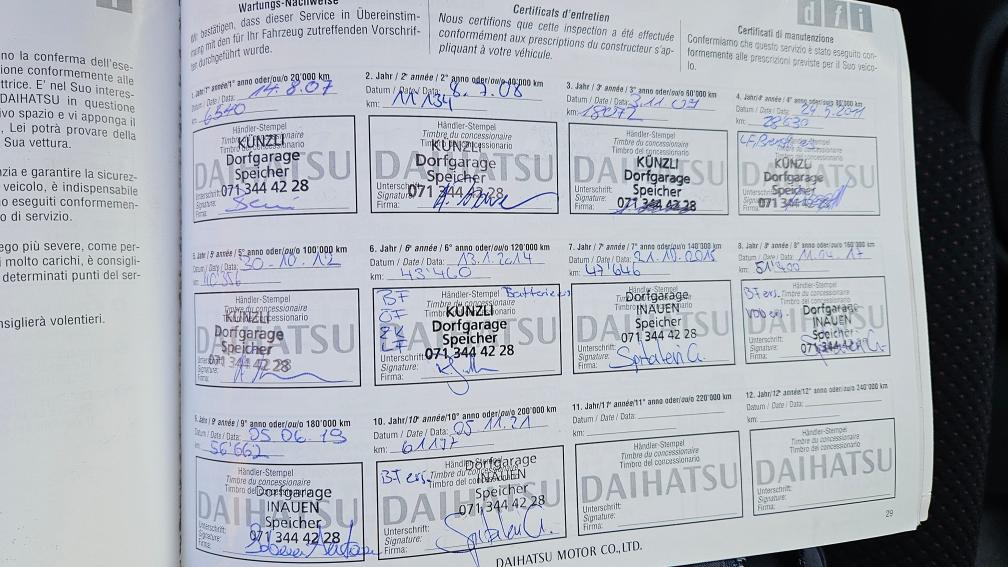 no la conferma dell'ese-
ione conformemente alle
ttrice. E' nel Suo interes-
DAIHATSU in questione
ivo spazio e vi apponga il
, Lei potrà provare della
Sua vettura.
nzia e garantire la sicurez-
veicolo, è indispensabile
no eseguiti conformemen-
o di servizio.
ego più severe, come per-
i molto carichi, è consigli-
determinati punti del ser-
nsiglierà volentieri.
Wartungs-Nachweise
bestätigen, dass dieser Service in Übereinstim-
mung mit den für Ihr Fahrzeug zutreffenden Vorschrif-
ten durchgeführt wurde.
Certificats d'entretien
Nous certifions que cette inspection a été effectuée
conformément aux prescriptions du constructeur s'ap-
pliquant à votre véhicule.
d f i
Certificati di manutenzione
Confermiamo che questo servizio è stato eseguito con-
formemente alle prescrizioni previste per il Suo veico-
lo.
1. Jahr/1e année/1° anno oder/ou/o 20'000 km
Datum / Date / Data: 14.8.07
km: 6540
Händler-Stempel
Timbre du concessionnaire
Timbro del concessionario
DAIHATSU
KÜNZLI
Dorfgarage
Speicher
071 344 42 28
Unterschrift:
Signature:
Firma:
2. Jahr / 2e année / 2° anno oder/ou/o 40'000 km
Datum / Date / Data: 8.7.08
km: 11134
Händler-Stempel
Timbre du concessionnaire
Timbro del concessionario
DAIHATSU
KÜNZLI
Dorfgarage
Speicher
071 344 42 28
Unterschrift:
Signature:
Firma:
3. Jahr / 3e année / 3° anno oder/ou/o 60'000 km
Datum / Date / Data: 3.11.09
km: 18072
Händler-Stempel
Timbre du concessionnaire
Timbro del concessionario
DAIHATSU
KÜNZLI
Dorfgarage
Speicher
071 344 42 28
Unterschrift:
Signature:
Firma:
4. Jahr / 4e année / 4° anno oder/ou/o 80'000 km
Datum / Date / Data: 2011
km: 28630
DAIHATSU
KÜNZLI
Dorfgarage
Speicher
071 344 42 28
Unterschrift:
Signature:
Firma:
5. Jahr / 5e année / 5° anno oder/ou/o 100'000 km
Datum / Date / Data: 30-10-12
km:
Händler-Stempel
Timbre du concessionnaire
Timbro del concessionario
DAIHATSU
KÜNZLI
Dorfgarage
Speicher
071 344 42 28
Unterschrift:
Signature:
Firma:
6. Jahr / 6e année / 6° anno oder/ou/o 120'000 km
Datum / Date / Data: 13.1.2014
km: 43'460
BF
ÖF
ZK
LF
Händler-Stempel
Timbre du concessionnaire
Timbro del concessionario
DAIHATSU
KÜNZLI
Dorfgarage
Speicher
071 344 42 28
Unterschrift:
Signature:
Firma:
7. Jahr / 7e année / 7° anno oder/ou/o 140'000 km
Datum / Date / Data: 21.10.2015
km: 47'646
Händler-Stempel
Timbre du concessionnaire
Timbro del concessionario
DAIHATSU
Dorfgarage
INAUEN
Speicher
071 344 42 28
Unterschrift:
Signature:
Firma:
8. Jahr / 8e année / 8° anno oder/ou/o 160'000 km
Datum / Date / Data: 11.04.17
km: 51'400
BF ers.
Händler-Stempel
Timbre du concessionnaire
Timbro del concessionario
DAIHATSU
Dorfgarage
INAUEN
Speicher
071 344 42 28
Unterschrift:
Signature:
Firma:
9. Jahr / 9e année / 9° anno oder/ou/o 180'000 km
Datum / Date / Data: 05.06.19
km: 56'662
Händler-Stempel
Timbre du concessionnaire
Timbro del concessionario
DAIHATSU
Dorfgarage
INAUEN
Speicher
071 344 42 28
Unterschrift:
Signature:
Firma:
10. Jahr/10e année/10° anno oder/ou/o 200'000 km
Datum / Date / Data: 05.11.21
km: 61137
BF ers.
Händler-Stempel
Timbre du concessionnaire
Timbro del concessionario
DAIHATSU
Dorfgarage
INAUEN
Speicher
071 344 42 28
Unterschrift:
Signature:
Firma:
11. Jahr/11e année/11° anno oder/ou/o 220'000 km
Datum / Date / Data:
km:
Händler-Stempel
Timbre du concessionnaire
Timbro del concessionario
DAIHATSU
Unterschrift:
Signature:
Firma:
12. Jahr/12e année/12° anno oder/ou/o 240'000 km
Datum / Date / Data:
km:
Händler-Stempel
Timbre du concessionnaire
Timbro del concessionario
DAIHATSU
Unterschrift:
Signature:
Firma:
29
DAIHATSU MOTOR CO., LTD.